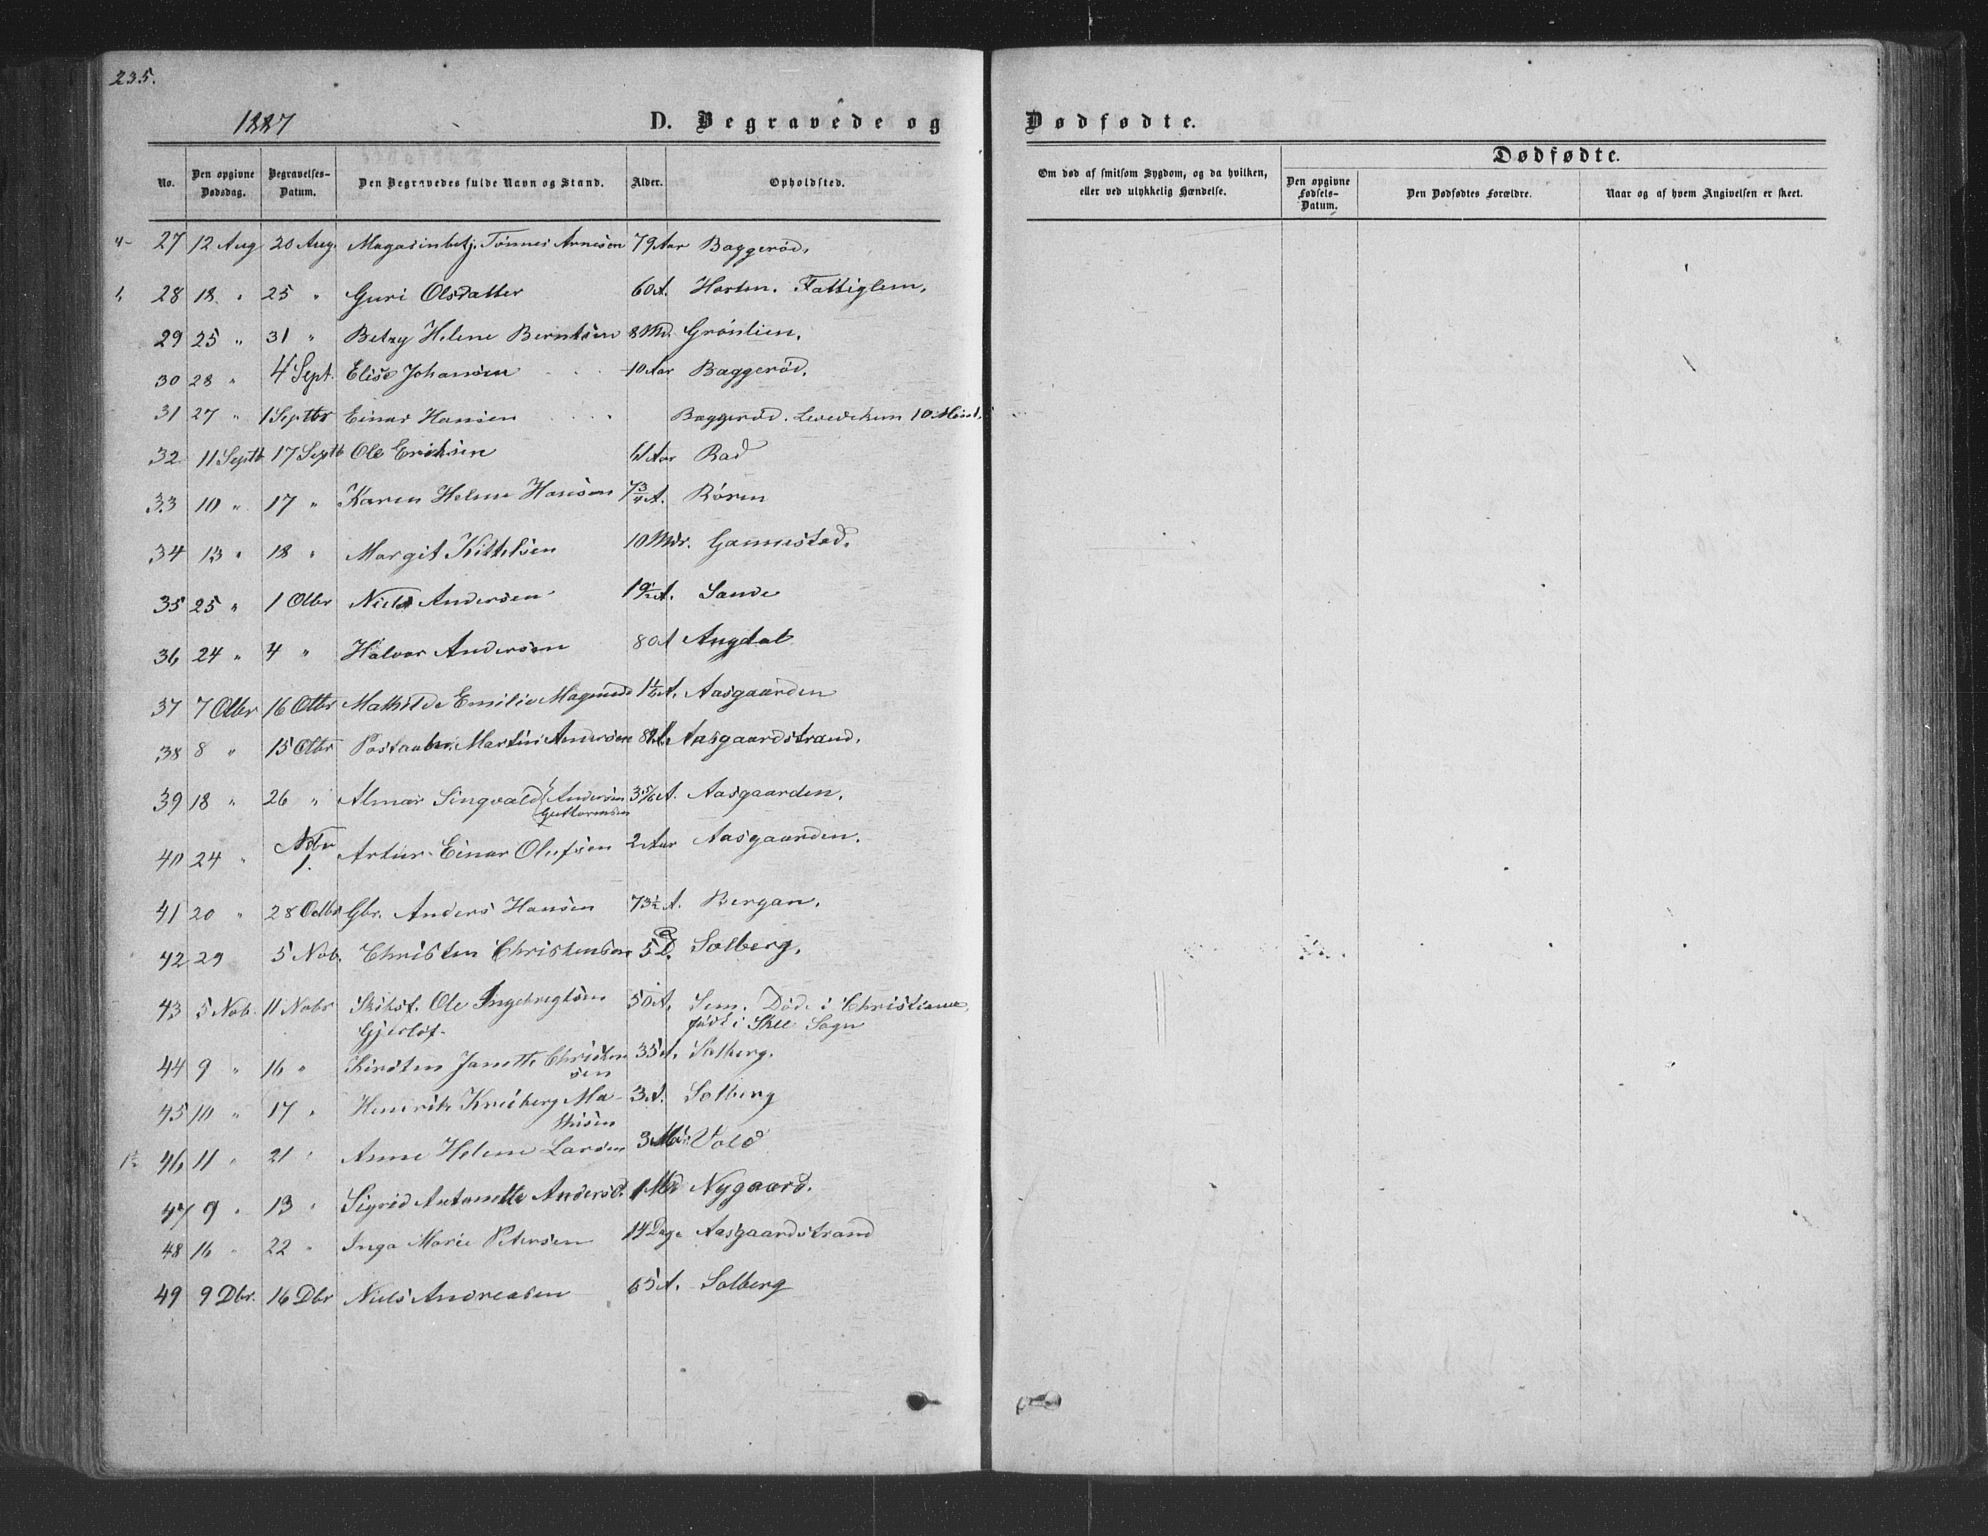 235.
1887
D. Begravede og
Dødfødte.
No.
Den opgivne Dødsdag.
Begravelses-Datum.
Den Begravedes fulde Navn og Stand.
Alder.
Opholdsted.
Om død af smitsom Sygdom, og da hvilken, eller ved ulykkelig Hændelse.
Dødfødte.
Den opgivne Fødsels-Datum.
Den Dødfødtes Forældre.
Naar og af hvem Angivelsen er skeet.
27 12 Aug 20 Aug Magasinbetj. Tønnes Arnesen 79 Aar Baggerød.
28 18 " 25 " Guri Olsdatter 60 A. Horten. Fattiglem.
29 25 " 31 " Betzy Helene Berntsen 8 Md. Grønlien.
30 28 " 4 Sept. Elise Johansen 10 Aar Baggerød.
31 27 " 1 Septbr Einar Hansen Baggerød. Levede kun 10 Minut.
32 11 Septb 17 Septb Ole Eriksen Aar Rad
33 10 " 17 " Karen Helene Hansen 7 3/4 A. Røren
34 13 " 18 " Margit Kittelsen 10 Mdr. Gannestad.
35 25 " 1 Otbr Niels Andersen A. Sande
36 24 " 4 " Halvor Andersen 80 A Augdal
37 7 Otbr 16 Otbr Mathilde Emilie Magnus A. Aasgaarden
38 8 " 15 Otbr Postaabn. Martin Andersen Aasgaardstrand.
39 18 " 26 " Almar Singvald Andersen 3 5/6 A. Aasgaarden.
Guttormsen
40 24 " Nobr 1. Artur Einar Olufsen 2 Aar Aasgaarden.
41 20 " 28 Octbr Gbr. Anders Hansen 73 1/2 A. Bergan.
42 29 5 Nob. Christen Christensen 5 D. Solberg.
43 5 Nob. 11 Nobr Skibsf. Ole Ingebregtsen 50 A. Sem. Døde i Christiania,
Gjersløf. født i Skee Sogn
44 9 " 16 " Kirsten Janette Christen 35 A. Solberg.
sen
45 10 " 17 " Henrik Kreiberg Ma- 3 A. Solberg
thisen
46 11 " 21 " Anne Helene Larsen 3 Mdr Vold
47 9 " 13 " Sigrid Antonette Andersd. 1 Md Nygaard.
48 16 " 22 " Inga Marie Petersen 14 Dage Aasgaardstrand
49 9 Dbr. 16 Dbr Niels Andreasen 65 A. Solberg